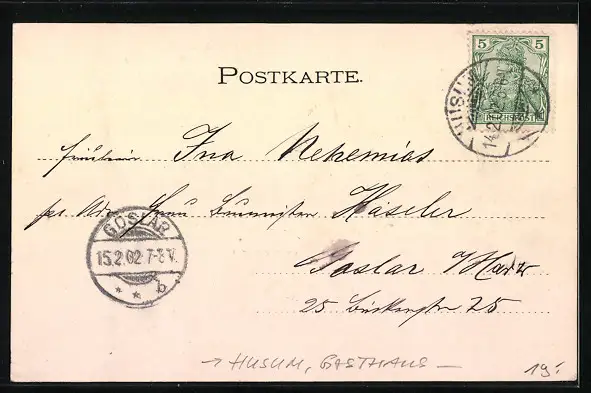 POSTKARTE.
5 5
REICHSPOST
HUSUM
14.2
Fräulein Ina Nehemias
pr. Adr. Frau Häseler
GOSLAR
15.2.02.7-8V.
* * b
Goslar / Harz
25 25
→ HUSUM, GASTHAUS —
19.-